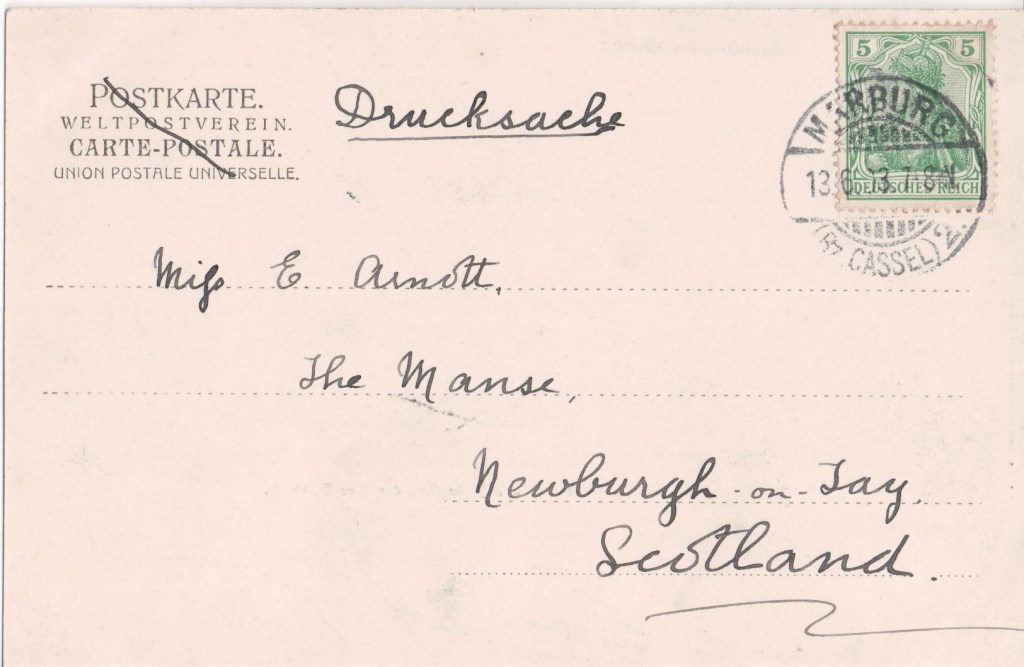 POSTKARTE.
WELTPOSTVEREIN.
CARTE-POSTALE.
UNION POSTALE UNIVERSELLE.
Drucksache
5 5
DEUTSCHES REICH
MARBURG
13.6. 03. 7-8 N
(Bz CASSEL) 2.
Miss E Arnott,
The Manse,
Newburgh-on-Tay.
Scotland.